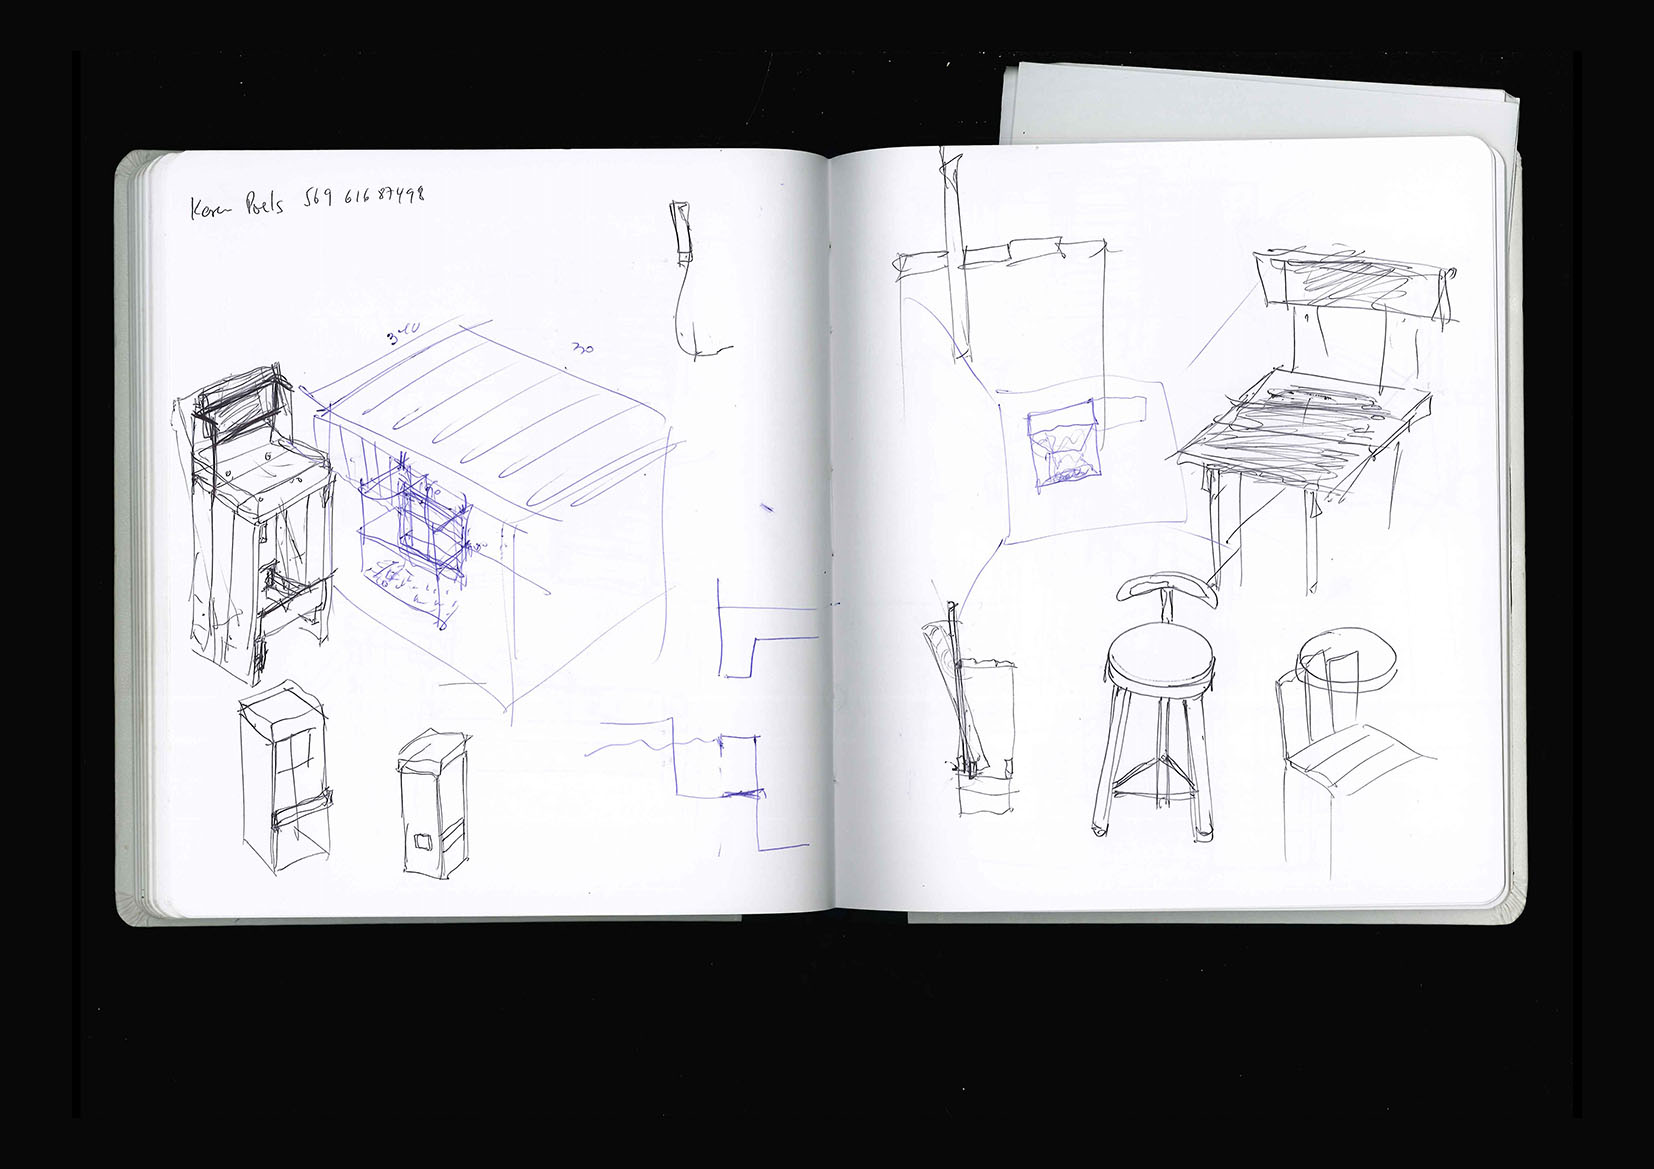 Karen Poels 569 616 87498
340
30